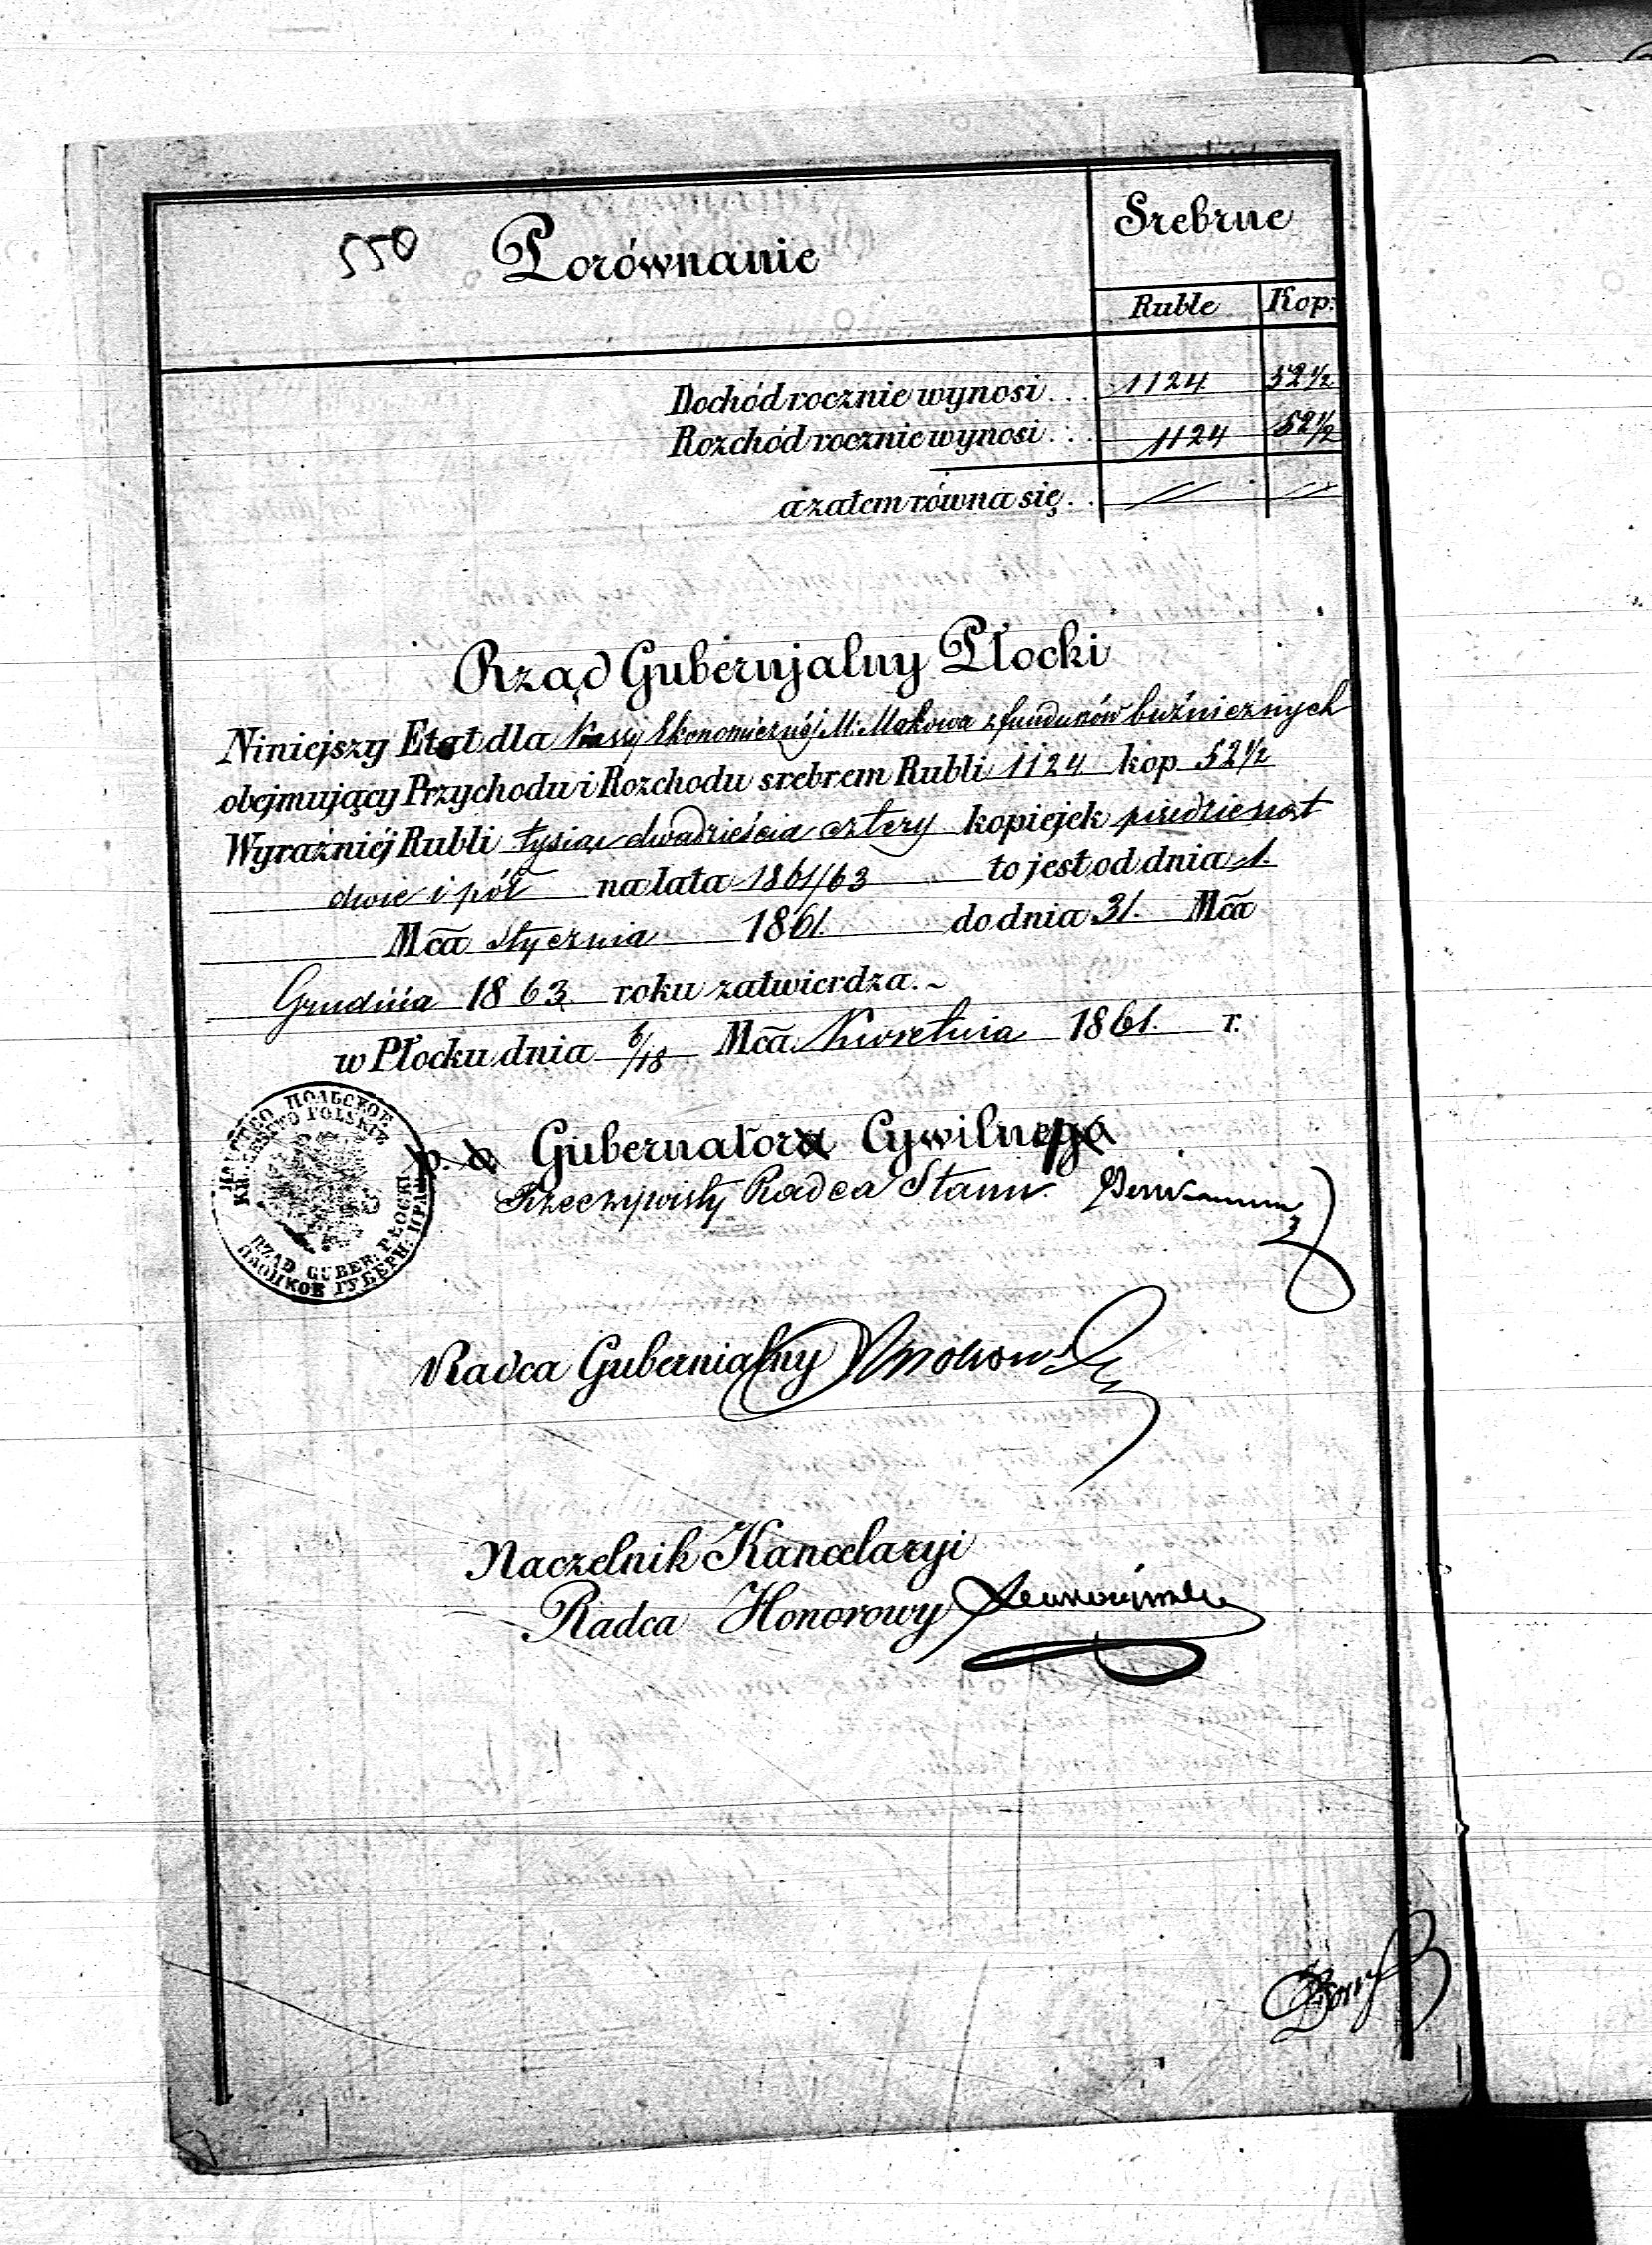 550 Porównanie
Srebrne
Ruble Kop:
Dochód rocznie wynosi... 1124 52½
Rozchód rocznie wynosi... 1124 52½
a zatem równa się.. // //
Rząd Gubernjalny Płocki
Niniejszy Etat dla Kassy Ekonomicznéj M: Makowa z funduszów bużnicznych
obejmujący Przychodu i Rozchodu srebrem Rubli 1124 kop 52½
Wyraźniéj Rubli tysiąc dwadzieścia cztery kopiejek piędziesąt
dwie i pół na lata 1861/63 to jest od dnia 1.
Mca stycznia 1861. do dnia 31. Mca
Grudnia 1863 roku zatwierdza.~
w Płocku dnia 6/18 Mca Kwietnia 1861. r.
ЦАРСТВО ПОЛЬСКОЕ
KRÓLESTWO POLSKIE
RZĄD GUBER: PŁOCKI
ПЛОЦКОЕ ГУБЕРН: ПРАВ
p. o Gubernatora Cywilnego
Rzeczywisty Radca Stanu
Radca Gubernialny
Naczelnik Kancelaryi
Radca Honorowy